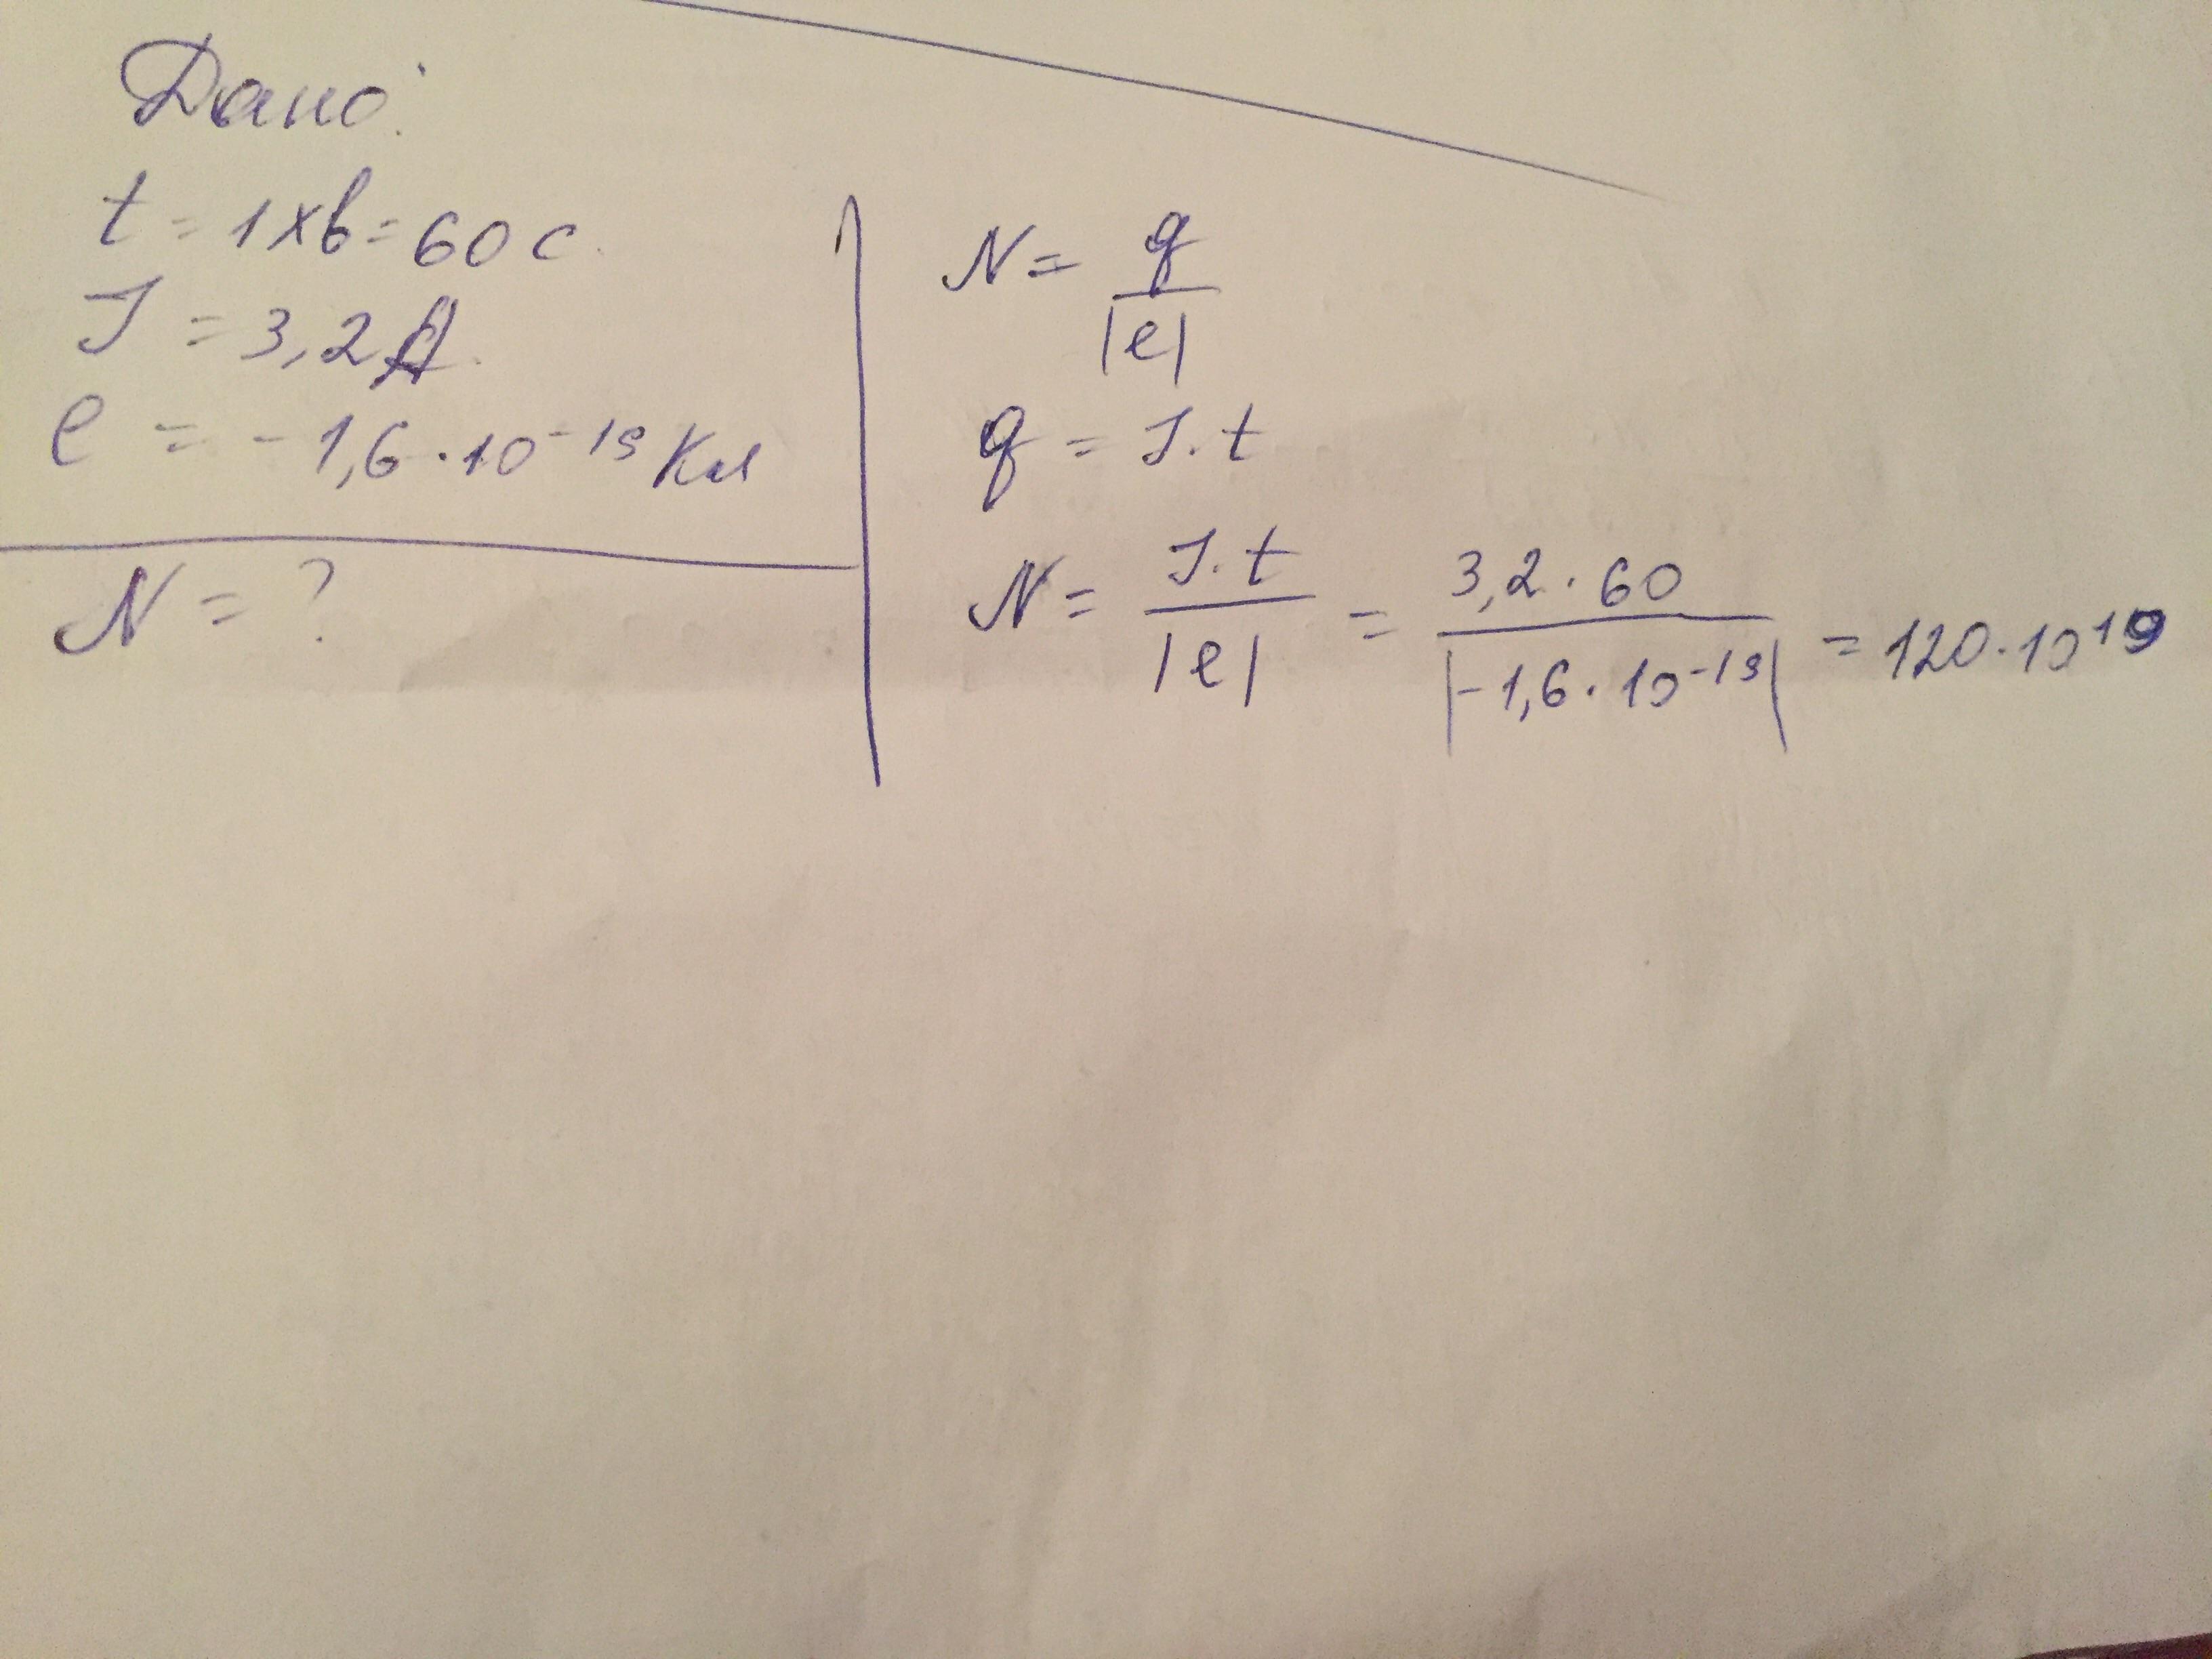 Дано:
t = 1хв = 60 с.
I = 3,2 А.
e = -1,6 · 10⁻¹⁹ Кл
N = ?
N = q / |e|
q = I · t
N = I · t / |e| = 3,2 · 60 / |-1,6 · 10⁻¹⁹| = 120 · 10¹⁹